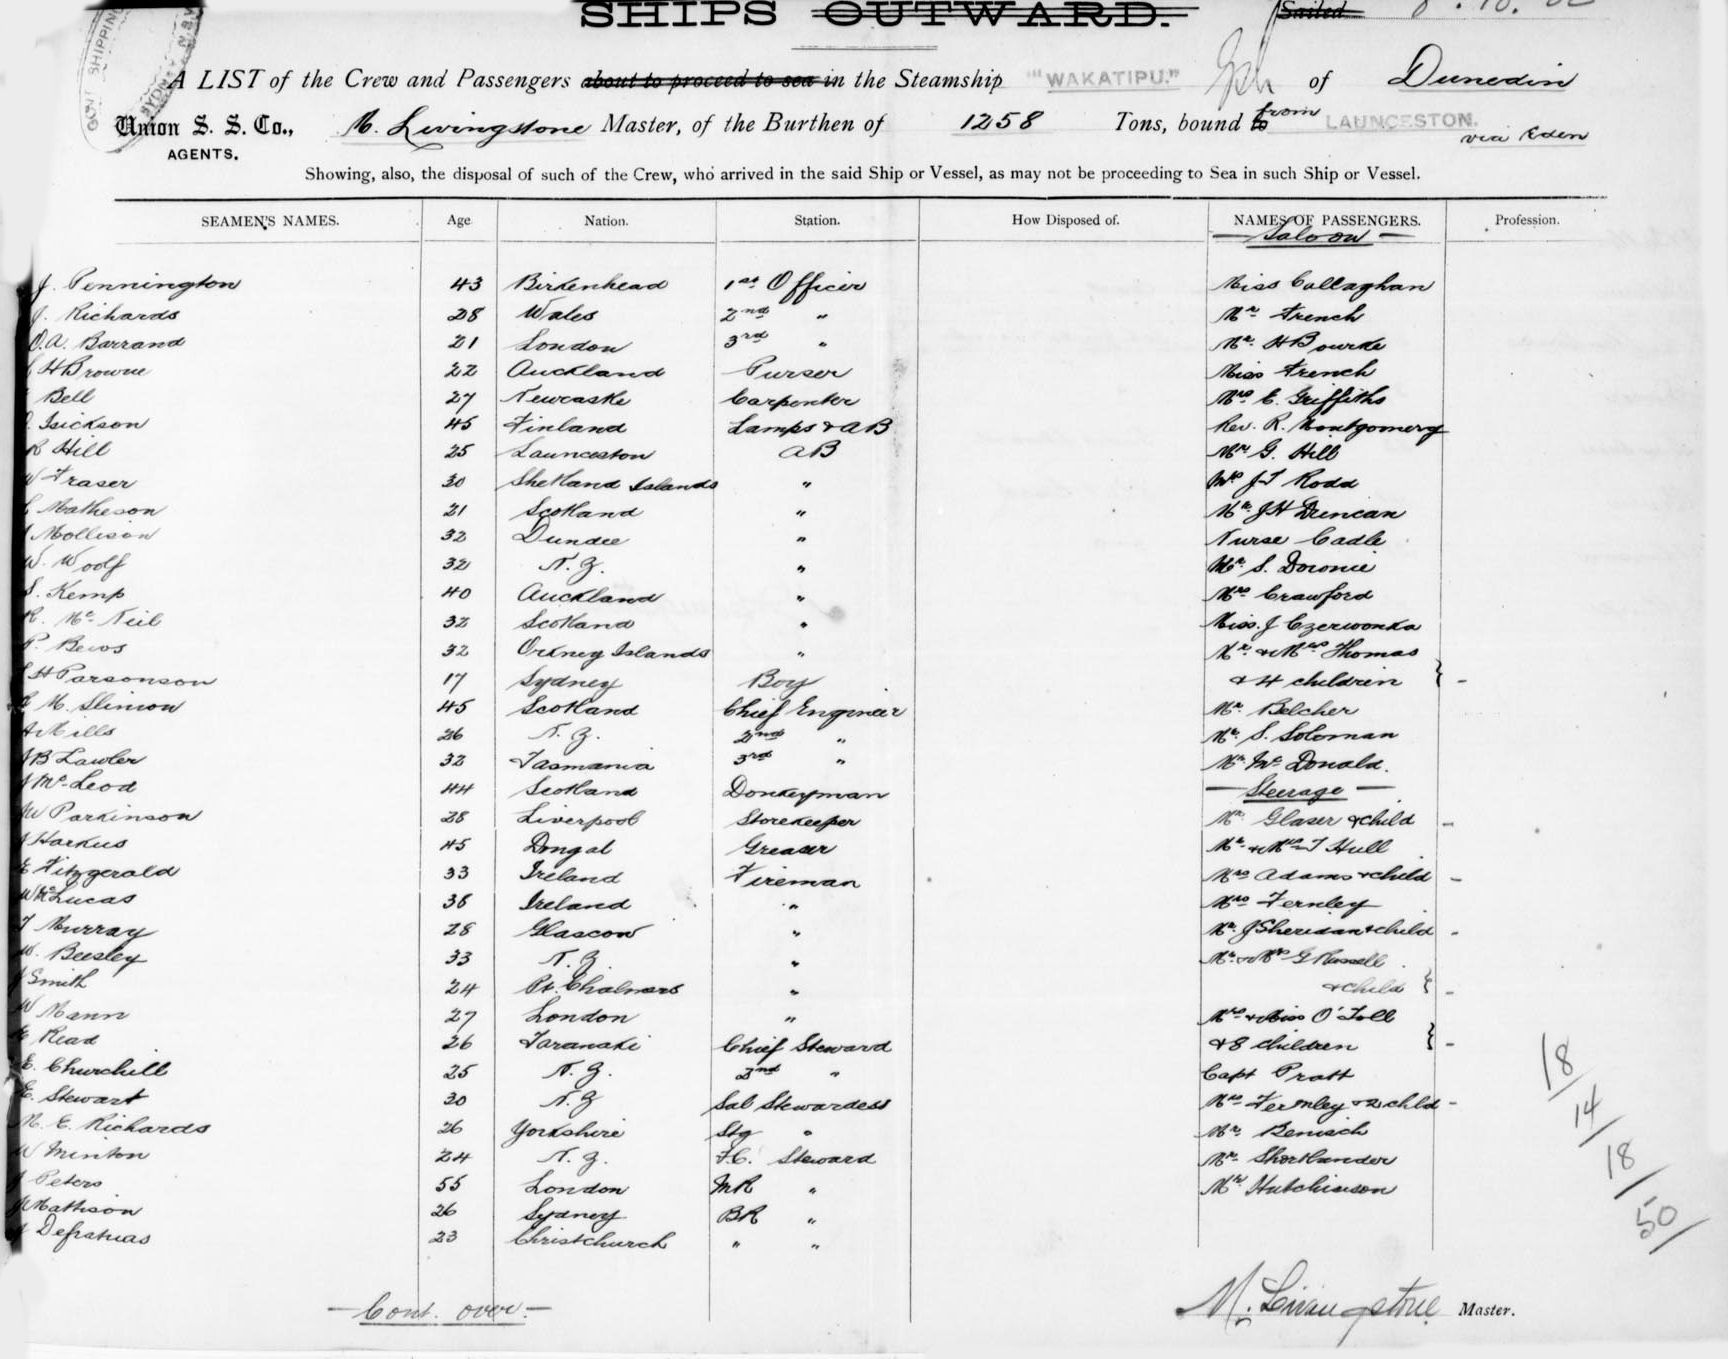 SHIPS OUTWARD. Sailed
GOVT SHIPPING SYDNEY N.S.W.
A LIST of the Crew and Passengers about to proceed to sea in the Steamship "WAKATIPU." of Dunedin
Union S. S. Co., M. Livingstone Master, of the Burthen of 1258 Tons, bound to from LAUNCESTON.
AGENTS. via Eden
Showing, also, the disposal of such of the Crew, who arrived in the said Ship or Vessel, as may not be proceeding to Sea in such Ship or Vessel.
SEAMEN'S NAMES. Age Nation. Station. How Disposed of. NAMES OF PASSENGERS. Profession.
Saloon
J. Pennington 43 Birkenhead 1st Officer Miss Callaghan
J. Richards 28 Wales 2nd " Mr French
O.A. Barrand 21 London 3rd " Mr. H Bourke
H Browne 22 Auckland Purser Miss French
Bell 27 Newcastle Carpenter Mrs E. Griffiths
Isickson 45 Finland Lamps & AB Rev. R. Montgomery
R Hill 25 Launceston AB Mr G. Hill
W Fraser 30 Shetland Islands " J T Rodd
Matheson 21 Scotland " Mr. J H Duncan
Mollison 32 Dundee " Nurse Cadle
W. Woolf 32 N. Z. " Mr. S. Downie
S. Kemp 40 Auckland " Mrs Crawford
R. Mc Neil 32 Scotland " Miss. J Czerwonka
P. Bews 32 Orkney Islands " Mr & Mrs Thomas
H Parsonson 17 Sydney Boy & 4 children } -
M. Slimon 45 Scotland Chief Engineer Mr Belcher
A Mills 26 N. Z. 2nd " Mr. S. Soloman
J B Lawler 32 Tasmania 3rd " Mr. Mc Donald.
J McLeod 44 Scotland Donkeyman Steerage
W Parkinson 28 Liverpool Storekeeper Mr Glaser & child -
J Harkus 45 Dongal Greaser Mr & Mrs T Hull
E Fitzgerald 33 Ireland Fireman Mrs Adams & child -
W McLucas 38 Ireland " Mrs Fernley
T Murray 28 Glascow " Mr. J Sheridan & child -
W. Beesley 33 N. Z. " Mr & Mrs G Russell
J Smith 24 Pt. Chalmers " & child } -
W Mann 27 London " Mrs & Miss O'Toll
Read 26 Taranaki Chief Steward & 8 children } -
E. Churchill 25 N. Z. 2nd " Capt Pratt
E. Stewart 30 N. Z Sal Stewardess Mrs Fernley & 2 chld -
M. E. Richards 26 Yorkshire Stg " Mr. Benisch
W Minton 24 N. Z. F.C. Steward Mr Shortlander
J Peters 55 London MR " Mr Hutchison
Mathison 26 Sydney BR "
23 Christchurch " "
18
14
18
50
- Cont. over. -
M. Livingstone Master.